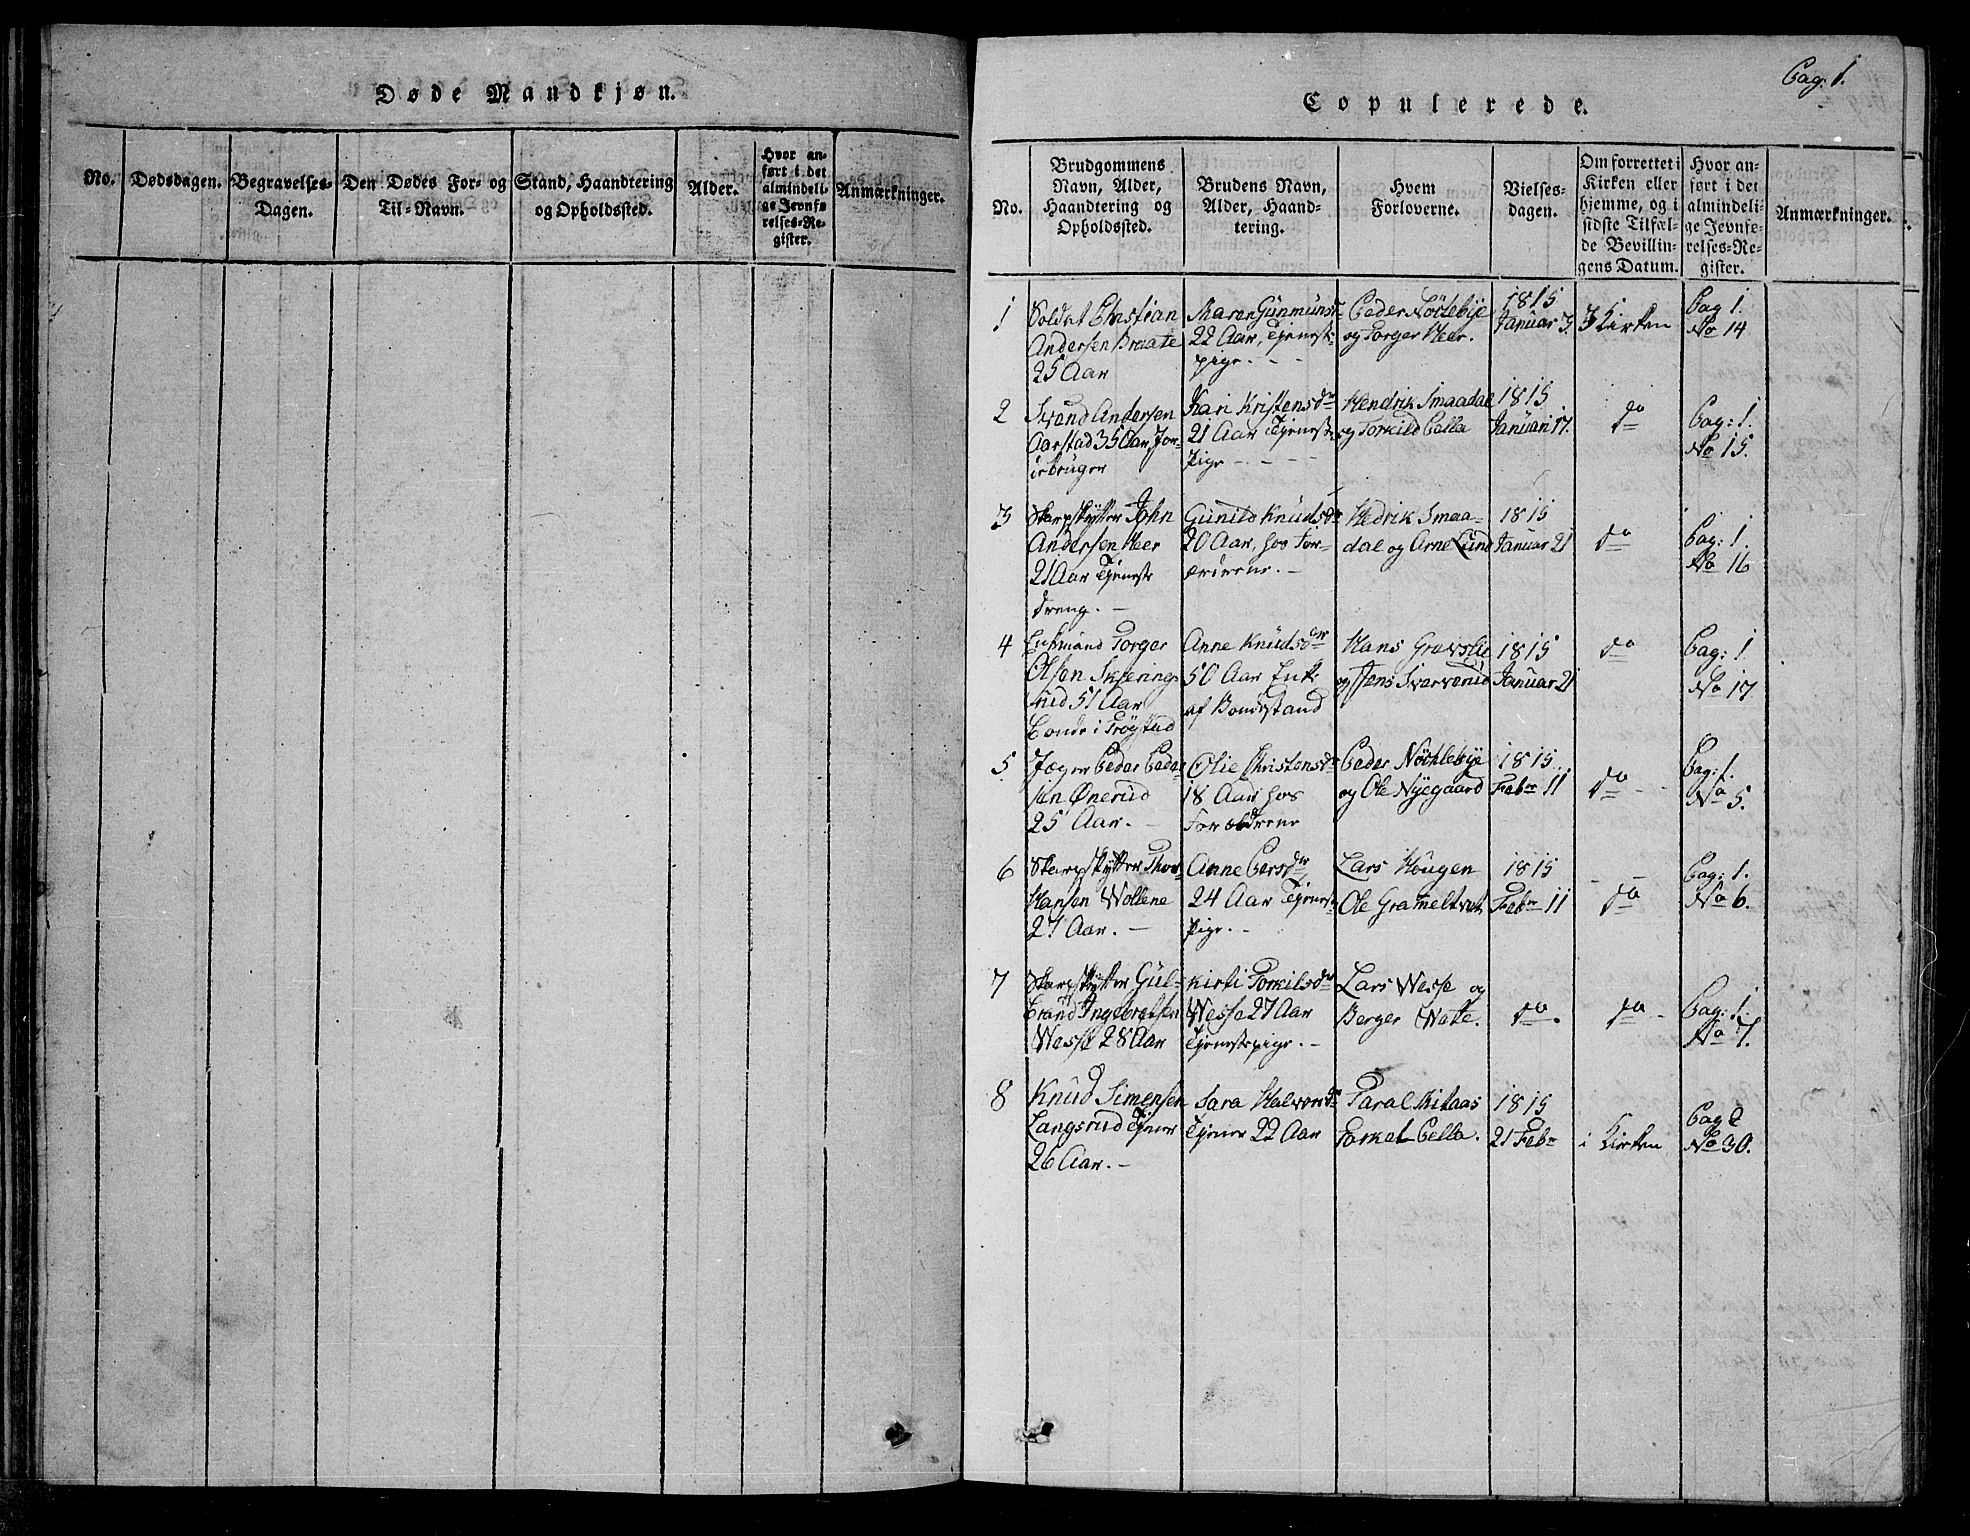 Døde Mandkjøn.
No.
Dødsdagen.
Begravelses-
Dagen.
Den Dødes For- og
Til-Navn.
Stand, Haandtering
og Opholdssted.
Alder.
Hvor an-
ført i det
almindeli-
ge Jevnfø
relses-Re-
gister.
Anmærkninger.
Pag: 1.
Copulerede.
No.
Brudgommens
Navn, Alder,
Haandtering og
Opholdssted.
Brudens Navn,
Alder, Haand-
tering.
Hvem
Forloverne.
Vielses-
dagen.
Om forrettet i
Kirken eller
hjemme, og i
sidste Tilfæl-
de Bevillin-
gens Datum.
Hvor an-
ført i det
almindeli-
ge Jevnfø-
relses-Re-
gister.
Anmærkninger.
1
Soldat Christian
Andersen Braate
25 Aar
Maren Gunmunsdr
22 Aar, Tjeneste-
pige. - -
Peder Nöclebÿe
og Torger Heer.
1815
Januar 3.
I Kirken
Pag 1.
No 14
2
Svend Andersen
Aarstad 35 Aar, Jor-
debruger
Kari Kristensdr
21 Aar Tjeneste
Pige - - -
Hendrik Smaadal
og Torkild Pella
1815
Januari 17.
do
Pag: 1.
No 15.
3
Skarpskÿtter John
Andersen Heer
21 Aar Tjeneste
dreng. -
Gunild Knudsdr
20 Aar, hos For-
ældrene. -
Hedrik Smaa-
dal og Arne Lund
1815
Januar 21
do
Pag: 1.
No 16
4
Enkmand Torger
Olsen Skjering-
rud 51 Aar
Bonde i Trögstad
Anne Knudsdr
50 Aar Enke
af Bondestand
Hans Gravslie
og Jens Svarverud
1815
Januar 21
do
Pag: 1
No 17.
5.
Jæger Peder Peder
sen Ønerud
25 Aar. -
Olie Christensdr
18 Aar hos
Forældrene
Peder Nöchlebÿe
og Ole Nÿegaard
1815.
Febr 11
do - -
Pag: 1.
No 5.
6
Skarpskÿtter Thor
Hansen Wollene
27 Aar. -
Anne Persdr
24 Aar Tjeneste
Pige. -
Lars Hougen
Ole Grameltvet
1815
Febr 11
do
Pag: 1.
No 6.
7
Skarpskÿtter Gul-
brand Ingebretsen
Wesse 28 Aar
Kirsti Torkilsdr
Wesse 27 Aar
Tjenestepige. -
Lars Wesse og
Berger Wate.
do.
do -
Pag: 1.
No 7.
8
Knud Simensen
Langsrud Tjener
26 Aar. -
Sara Halvorsdr
Tjener 22 Aar
Paral Skitaas
Torkel Pella.
1815
21 Febr
i Kirken
Pag 2
No 30.